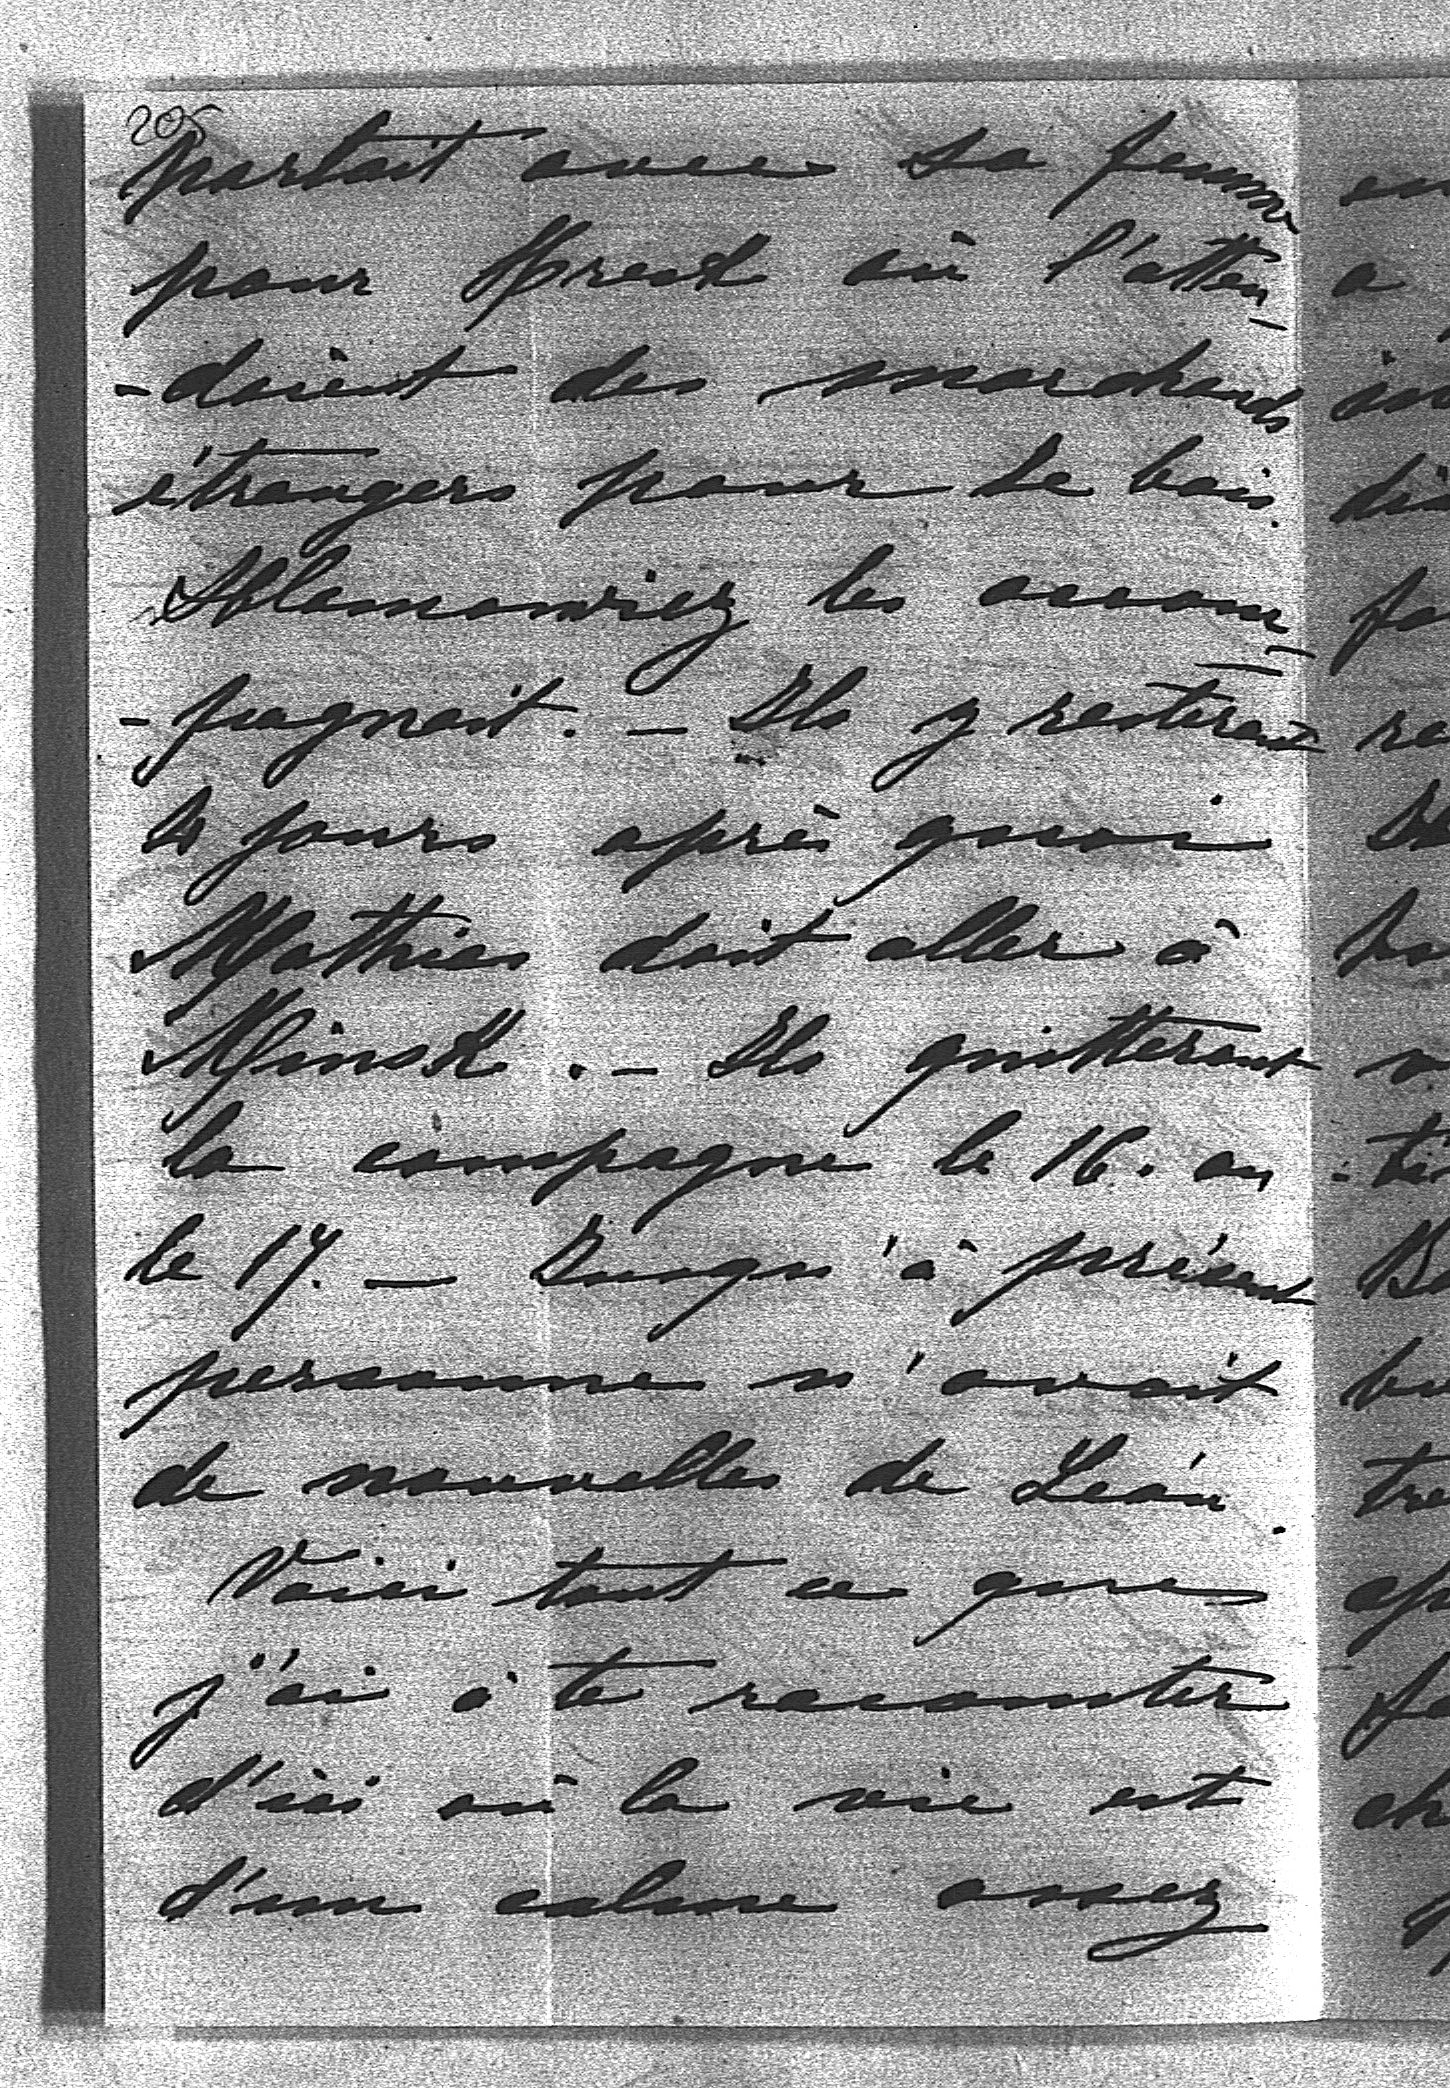 205
partait avec sa femme
pour Brest où l'atten
-daient des marchands
étrangers pour le bois.
les accom
-pagnait. – Ils y resteront
4 jours après quoi
Mathias doit aller à
Minsk. – Ils quitteront
la campagne le 16. ou
le 17. – Jusqu'à présent
personne n'avait
de nouvelles de Léon.
Voici tout ce que
j'ai à te raconter
d'ici où la vie est
d'un calme assez